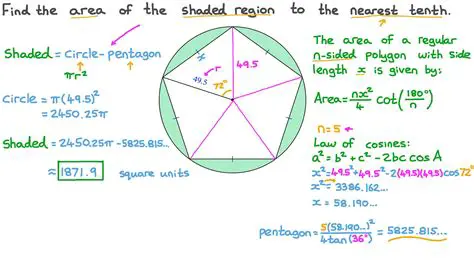 Find the area of the shaded region to the nearest tenth.
Shaded = Circle - pentagon
πr²
Circle = π(49.5)²
= 2450.25π
Shaded = 2450.25π - 5825.815...
≈ 1871.9 square units
r
49.5
49.5
72°
x
The area of a regular
n-sided polygon with side
length x is given by:
Area = nx²/4 cot(180°/n)
n=5
Law of cosines:
a² = b² + c² - 2bc cos A
x² = 49.5² + 49.5² - 2(49.5)(49.5) cos 72°
x² = 3386.162...
x = 58.190...
pentagon = 5(58.190...)²/4tan(36°) = 5825.815...